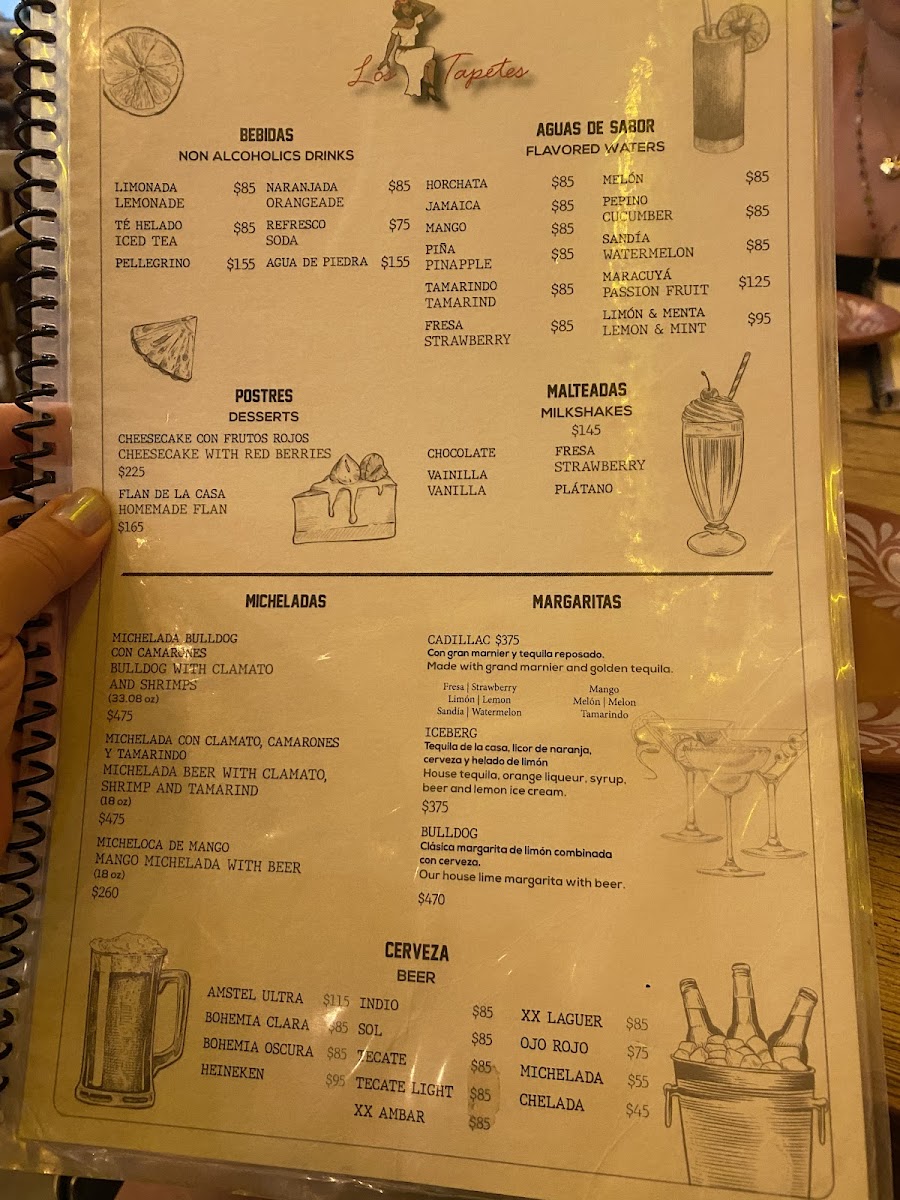 Los Tapetes
BEBIDAS
NON ALCOHOLICS DRINKS
LIMONADA $85
LEMONADE
TÉ HELADO $85
ICED TEA
PELLEGRINO $155
NARANJADA $85
ORANGEADE
REFRESCO $75
SODA
AGUA DE PIEDRA $155
AGUAS DE SABOR
FLAVORED WATERS
HORCHATA $85
JAMAICA $85
MANGO $85
PIÑA
PINAPPLE $85
TAMARINDO $85
TAMARIND
FRESA $85
STRAWBERRY
MELÓN $85
PEPINO
CUCUMBER $85
SANDÍA
WATERMELON $85
MARACUYÁ
PASSION FRUIT $125
LIMÓN & MENTA $95
LEMON & MINT
POSTRES
DESSERTS
CHEESECAKE CON FRUTOS ROJOS
CHEESECAKE WITH RED BERRIES
$225
FLAN DE LA CASA
HOMEMADE FLAN
$165
MALTEADAS
MILKSHAKES
$145
CHOCOLATE
VAINILLA
VANILLA
FRESA
STRAWBERRY
PLÁTANO
MICHELADAS
MICHELADA BULLDOG
CON CAMARONES
BULLDOG WITH CLAMATO
AND SHRIMPS
(33.08 oz)
$475
MICHELADA CON CLAMATO, CAMARONES
Y TAMARINDO
MICHELADA BEER WITH CLAMATO,
SHRIMP AND TAMARIND
(18 oz)
$475
MICHELOCA DE MANGO
MANGO MICHELADA WITH BEER
(18 oz)
$260
MARGARITAS
CADILLAC $375
Con gran marnier y tequila reposado.
Made with grand marnier and golden tequila.
Fresa | Strawberry
Limón | Lemon
Sandía | Watermelon
Mango
Melón | Melon
Tamarindo
ICEBERG
Tequila de la casa, licor de naranja,
cerveza y helado de limón
House tequila, orange liqueur, syrup,
beer and lemon ice cream.
$375
BULLDOG
Clásica margarita de limón combinada
con cerveza.
Our house lime margarita with beer.
$470
CERVEZA
BEER
AMSTEL ULTRA $115
BOHEMIA CLARA $85
BOHEMIA OSCURA $85
HEINEKEN $95
INDIO $85
SOL $85
TECATE $85
TECATE LIGHT $85
XX AMBAR $85
XX LAGUER $85
OJO ROJO $75
MICHELADA $55
CHELADA $45